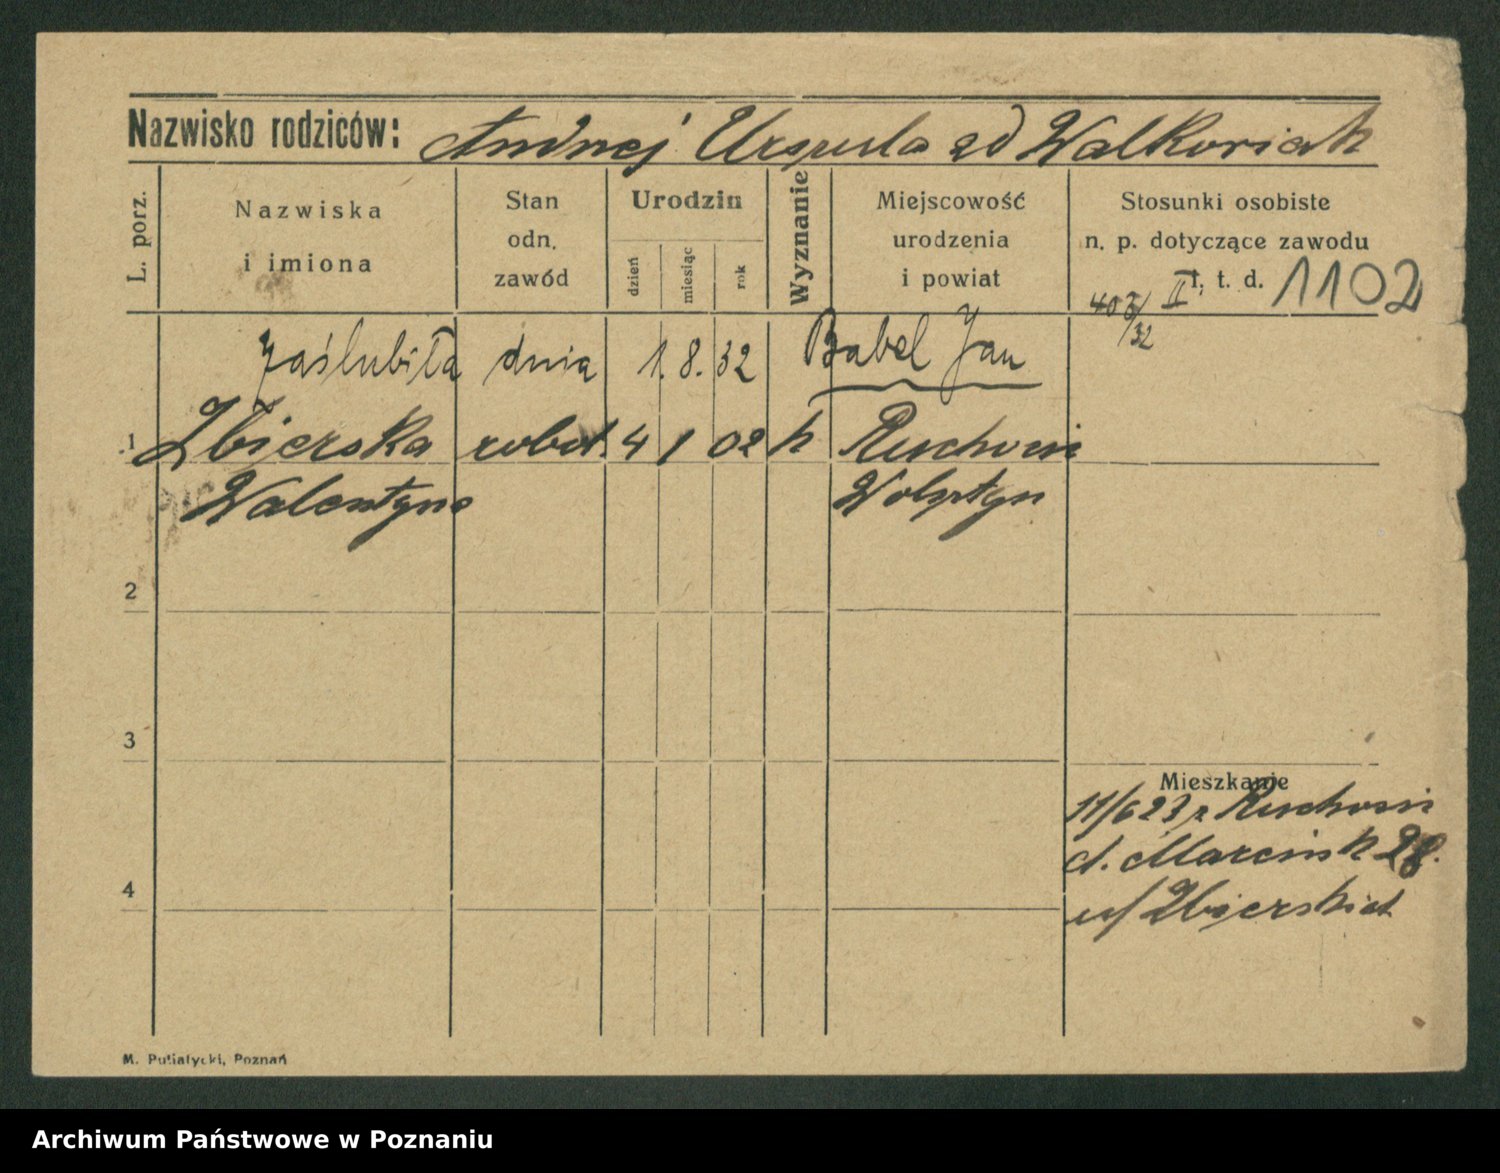 Nazwisko rodziców: Andrzej Urszula zd Walkoviak
L. porz.
Nazwiska
i imiona
Stan
odn.
zawód
Urodzin
dzień
miesiąc
rok
Wyznanie
Miejscowość
urodzenia
i powiat
Stosunki osobiste
n. p. dotyczące zawodu
i. t. d. 1102
II
/32
zaślubiła dnia 1.8.32 Babel Jan
1 Zbierska robot. 4 1 02 k Ruchocin
Walentyna Wolsztyn
2
3
Mieszkanie
11/6 23 z Ruchocin
d. Marcink 28.
4
u/ Zbierskich
M. Putiatycki, Poznań
Archiwum Państwowe w Poznaniu